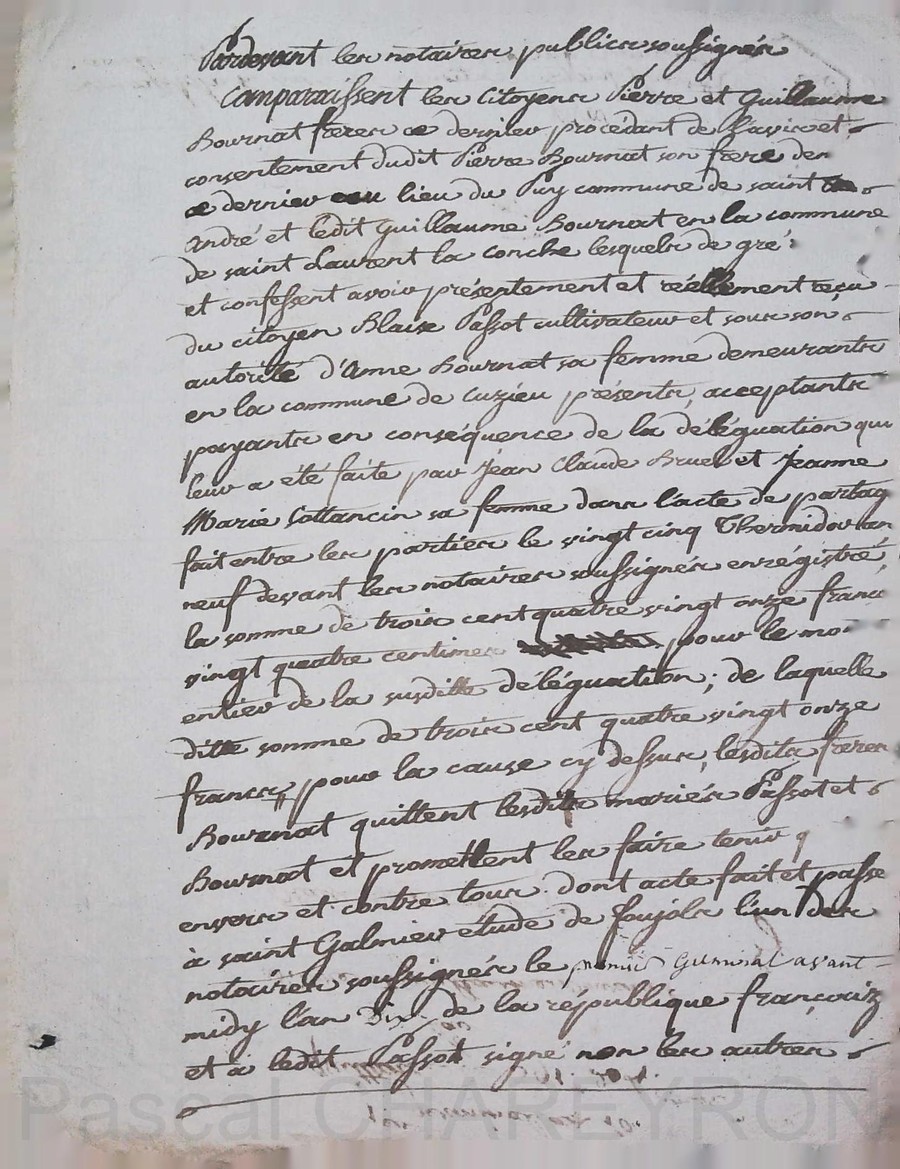 Pardevant les notaires publics soussignés
Comparaissent les Citoyens Pierre et Guillaume
Bournat freres ce dernier procédant de l'avis et
consentement dudit Pierre Bournat son frere de
ce dernier au lieu du Puy commune de saint
André et ledit Guillaume Bournat en la commune
de saint Laurent la conche lesquels de gré
et confessent avoir présentement et réellement reçu
du citoyen Blaise Passot cultivateur et sous son
autorité d'Anne Bournat sa femme demeurants
en la commune de Cuzieu présents, acceptants
payants en conséquence de la déléguation qui
leur a été faite par Jean Claude Bruel et Jeanne
Marie Cottancin sa femme dans l'acte de partag
fait entre les parties le vingt cinq Thermidor an
neuf devant les notaires soussignés enrégistré,
la somme de trois cent quatre vingt onze franc
vingt quatre centimes pour le mo
entier de la susditte déléguation; de laquelle
ditte somme de trois cent quatre vingt onze
francs, pour la cause cy dessus, lesdits freres
Bournat quittent lesdits mariés Passot et
Bournat et promettent les faire tenir q
envers et contre tous. dont acte fait et passé
à saint Galmier étude de foujols l'un des
notaires soussignés le premier Germinal avant
midy l'an Dix de la république françaiz
et a ledit Passot signé non les autres
Pascal CHAREYRON